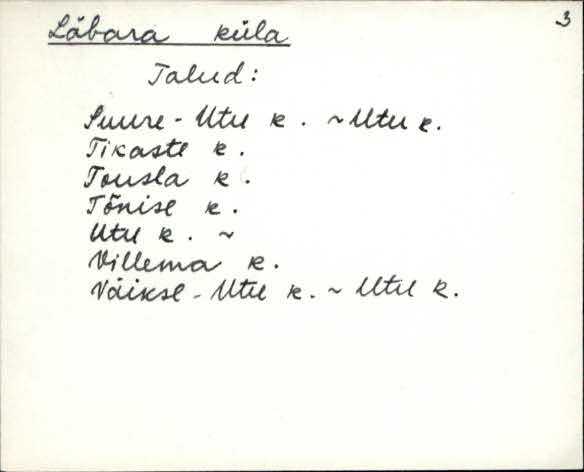 3
Läbara küla
Talud:
Suure-Utu k. ~ Utu k.
Tikaste k.
Tousla k.
Tõnise k.
Utu k. ~
Villema k.
Väikse-Utu k. ~ Utu k.